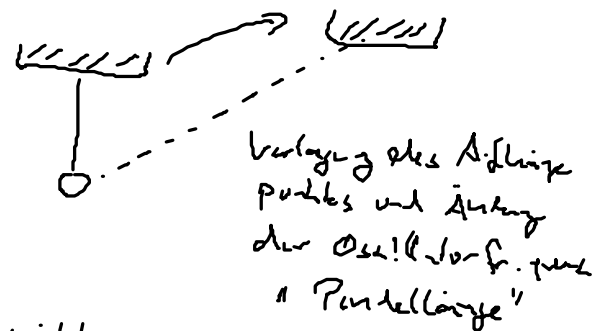 Verlagerung des Aufhänge
punktes und Änderung
der Oszillatorfrequenz
"Pendellänge"